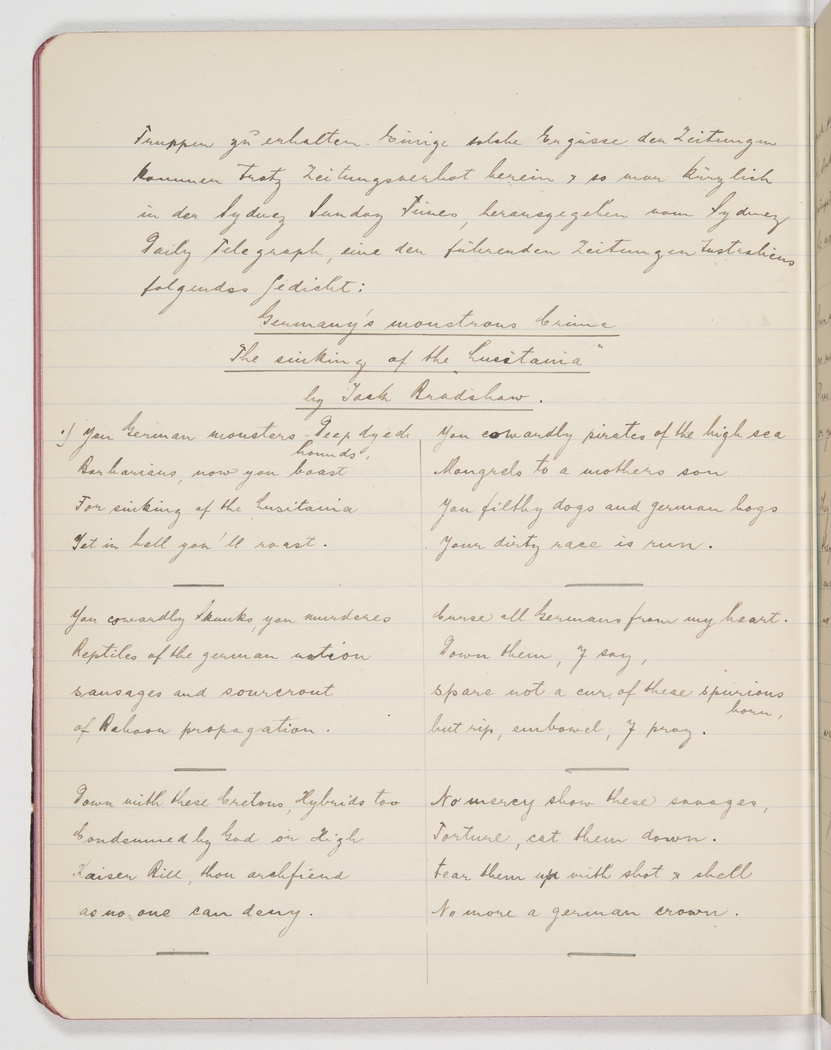 Truppen zu erhalten. Einige solche Ergüsse der Zeitungen
kommen trotz Zeitungsverbot herein & so war kürzlich
in der Sydney Sunday Times, herausgegeben vom Sydney
Daily Telegraph, eine der führenden Zeitungen Australiens
folgendes Gedicht:
Germany's monstrous Crime
"The sinking of the Lusitania"
by Jack Bradshaw.
1) You German monsters - Deep dyed
hounds,
Barbarians, now you boast
For sinking of the Lusitania
Yet in hell you'll roast.
You cowardly Skunks, you murderes
Reptiles of the german nation
sausages and sourcrout
of Baboon propagation.
Down with these Cretons, Hybrids too
Condemned by God on High
Kaiser Bill, thou archfiend
as no one can deny.
You cowardly pirates of the high sea
Mongrels to a mothers son
You filthy dogs and german hogs
Your dirty race is run.
Curse all Germans from my heart.
Down them, I say,
spare not a cur, of these spurious
born,
but rip, embowel, I pray.
No mercy show these savages,
Torture, cut them down.
tear them up with shot & shell
No more a german crown.